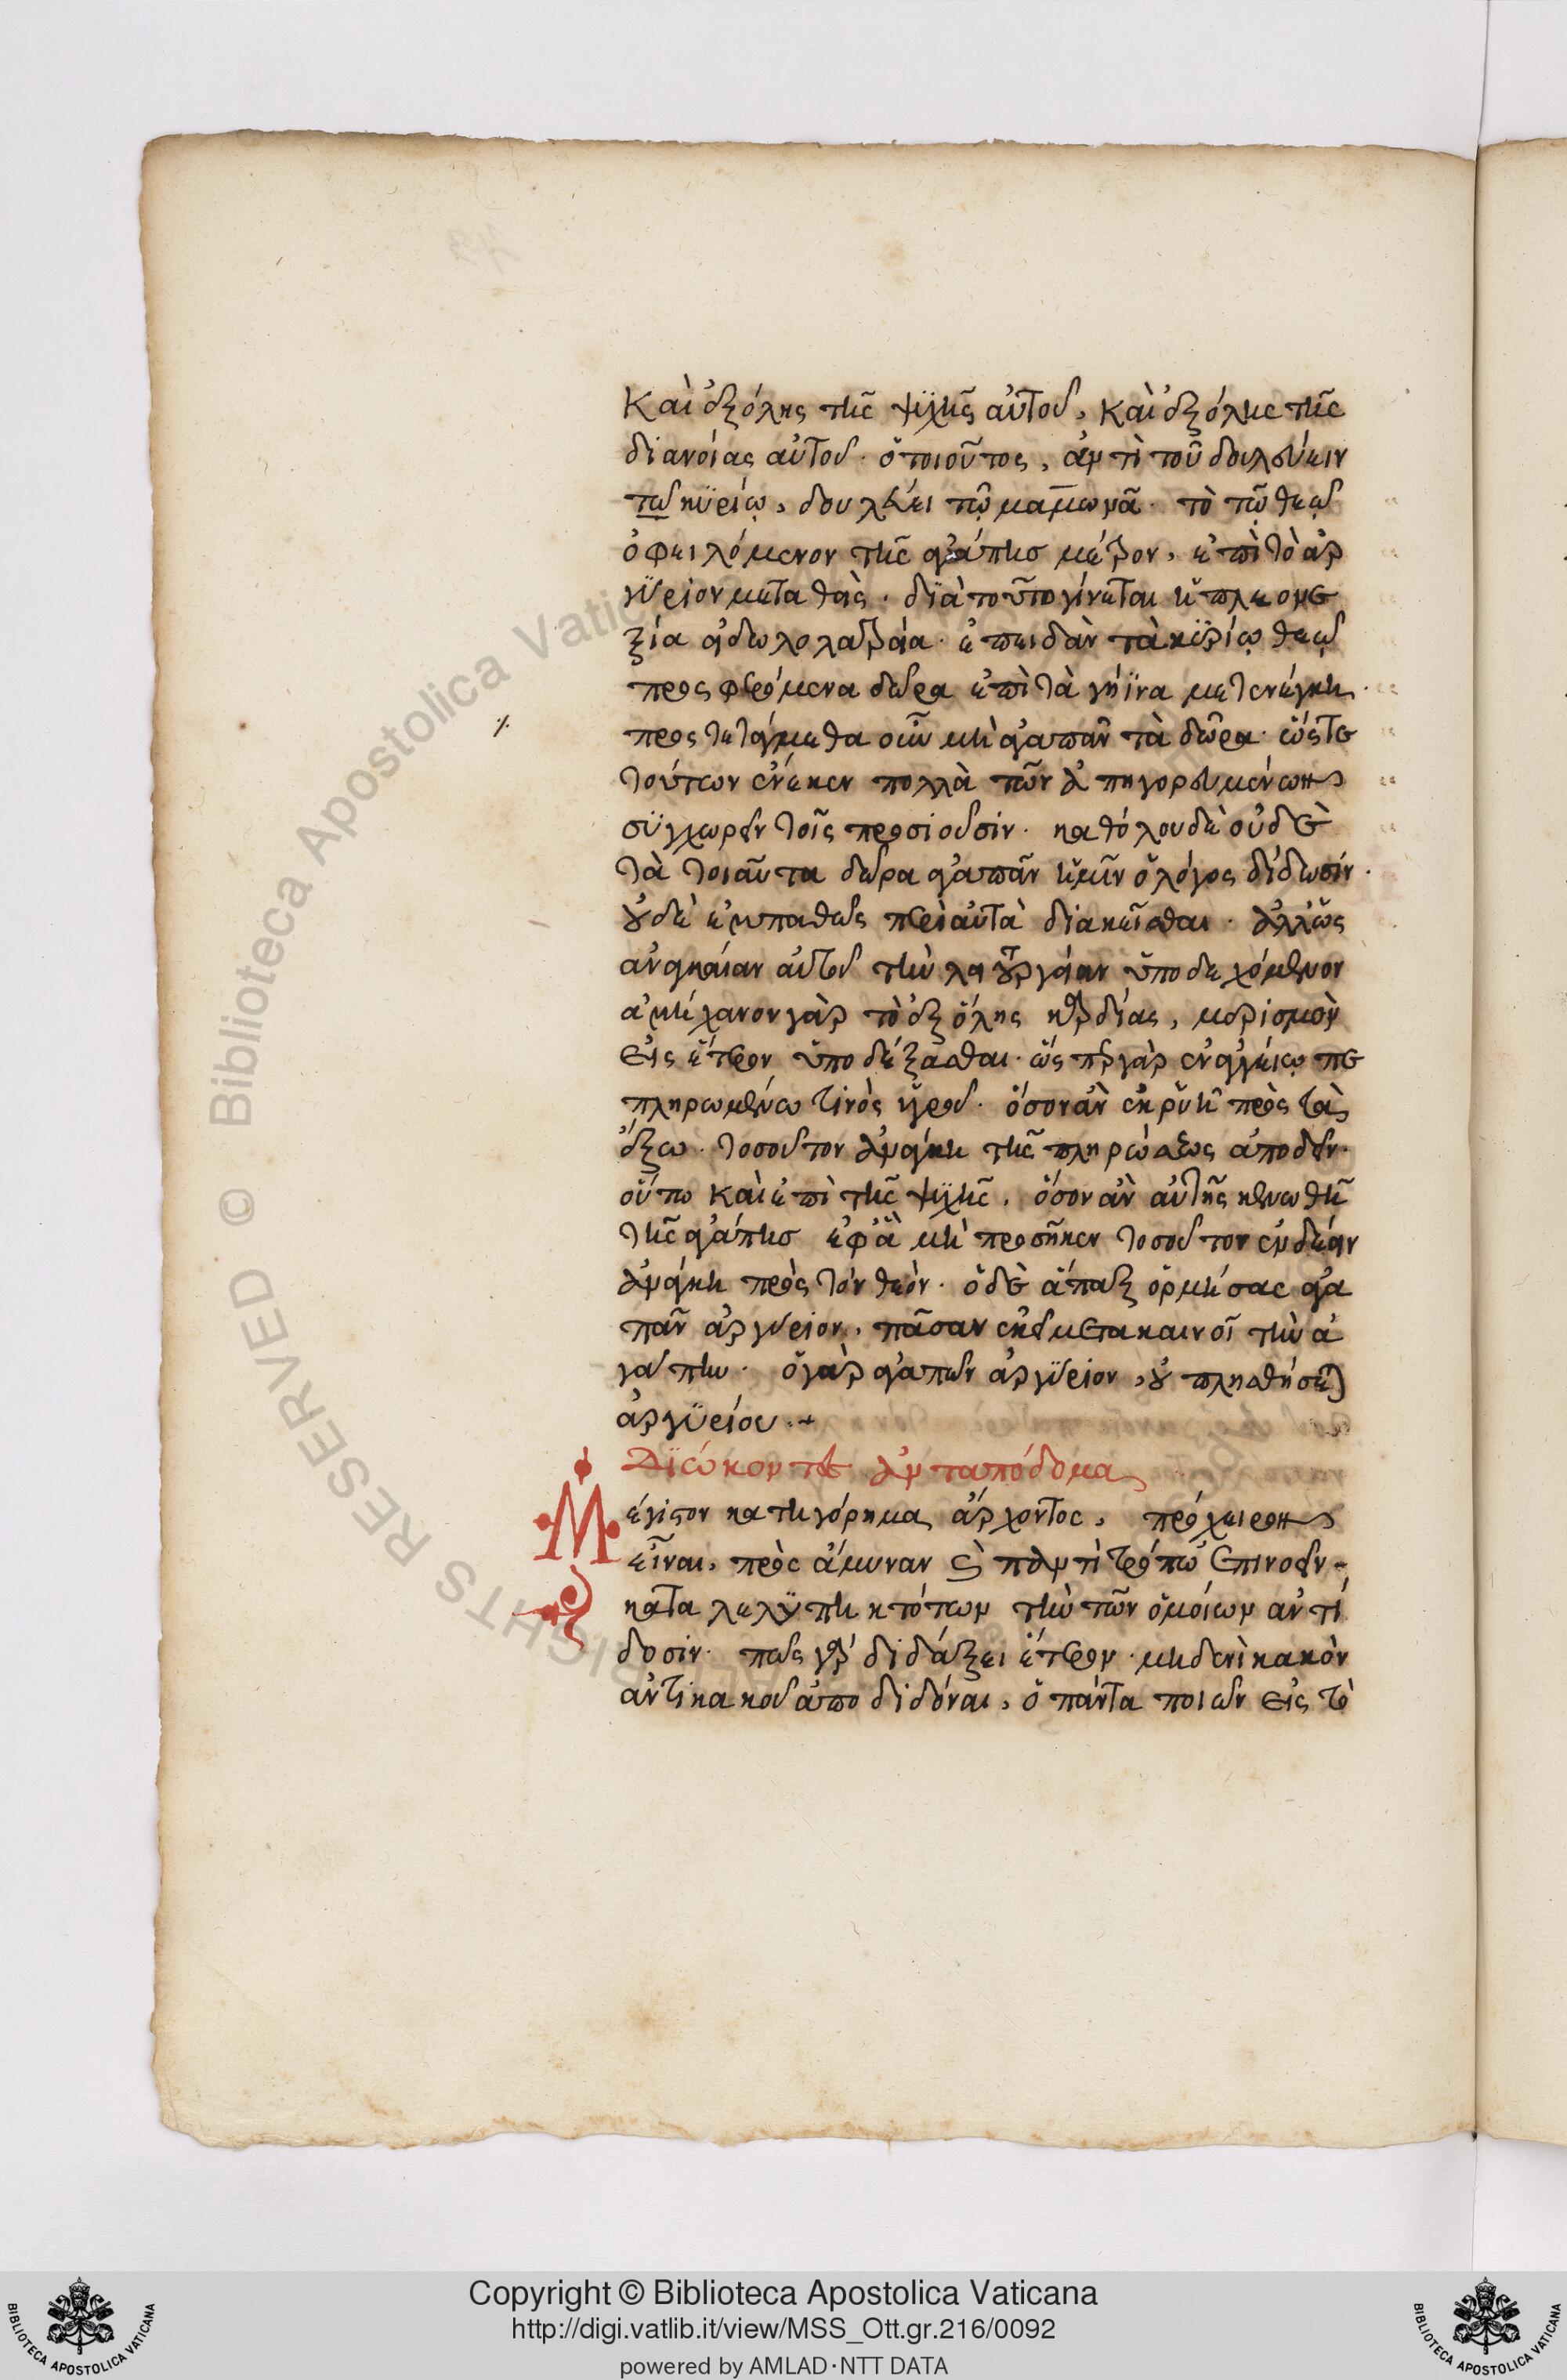 Καὶ ἐξ ὅλης τῆς ψυχῆς αὐτοῦ, καὶ ἐξ ὅλης τῆς
διανοίας αὐτοῦ· ὁ τοιοῦτος, ἀντὶ τοῦ δουλεύειν
τῷ κυρίῳ, δουλεύει τῷ μαμωνᾷ· τὸ τῷ θεῷ
ὀφειλόμενον τῆς ἀγάπης μέτρον, ἐπὶ τὸ ἀρ
γύριον μεταθείς· διὰ τοῦτο γίνεται ἡ πλεονε
ξία εἰδωλολατρεία· ἐπειδὰν τὰ κυρίῳ θεῷ
προσφερόμενα δῶρα ἐπὶ τὰ γήϊνα μετενέγκη·
προστετάγμεθα οὖν μὴ ἀγαπᾶν τὰ δῶρα· ὥστε
τούτων ἕνεκεν πολλὰ τῶν ἀπηγορευμένων
συγχωρεῖν τοῖς προσιοῦσιν· καθόλου δὲ οὐδὲ
τὰ τοιαῦτα δῶρα ἀγαπᾶν ἡμῖν ὁ λόγος δίδωσιν·
οὐδὲ ἐμπαθῶς περὶ αὐτὰ διακεῖσθαι· ἀλλ' ὡς
ἀναγκαίαν αὐτῶν τὴν λειτουργίαν ὑποδεχόμενον
ἀμήχανον γὰρ τὸ ἐξ ὅλης καρδίας, μερισμὸν
εἰς ἕτερον ὑποδέξασθαι· ὥσπερ γὰρ ἐν ἀγγείῳ πε
πληρωμένω τινὸς ὑγροῦ· ὅσον ἂν ἐκρύῃ πρὸς τὰ
ἔξω· τοσοῦτον ἀνάγκη τῆς πληρώσεως ἀποδεῖν·
οὕτω καὶ ἐπὶ τῆς ψυχῆς, ὅσον ἂν αὐτῆς κενωθῇ
τῆς ἀγάπης ἐφ' ἃ μὴ προσῆκεν τοσοῦτον ἐνδεῖν
ἀνάγκη πρὸς τὸν θεόν· ὁ δὲ ἅπαξ ὁρμήσας ἀγα
πᾶν ἀργύριον, πᾶσαν ἐκεῖ μετακινεῖ τὴν ἀ
γάπην· ὁ γὰρ ἀγαπῶν ἀργύριον, οὐ πλησθήσεται
ἀργυρίου·
Διώκοντες ἀνταπόδομα
Μέγιστον κατηγόρημα ἄρχοντος, πρόχειρον
εἶναι, πρὸς ἄμυναν καὶ παντὶ τρόπῳ ἐπινοεῖν
κατὰ λελυπηκότων τὴν τῶν ὁμοίων ἀντί
δοσιν· πῶς γὰρ διδάξει ἕτερον· μηδενὶ κακὸν
ἀντὶ κακοῦ ἀποδιδόναι, ὁ πάντα ποιῶν εἰς τὸ
Copyright © Biblioteca Apostolica Vaticana
http://digi.vatlib.it/view/MSS_Ott.gr.216/0092
powered by AMLAD·NTT DATA